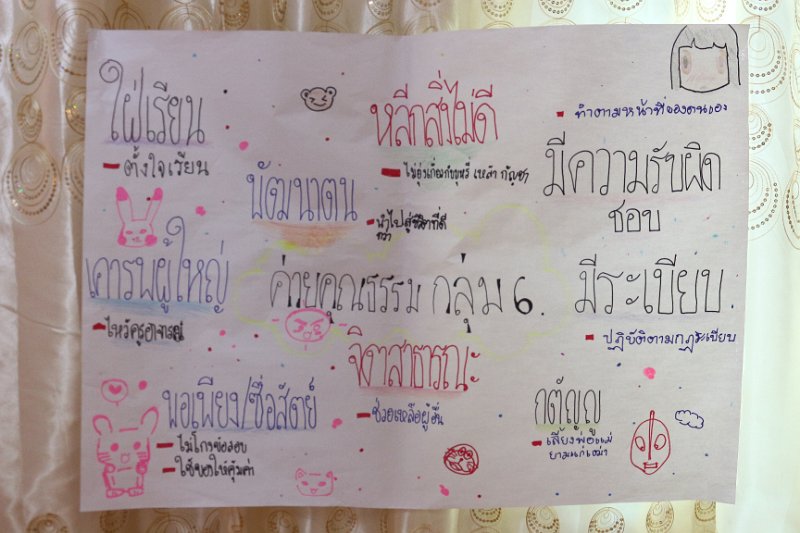 ใฝ่เรียน
ตั้งใจเรียน
หลีกสิ่งไม่ดี
ไม่ยุ่งเกี่ยวกับบุหรี่ เหล้า กัญชา
ทำตามหน้าที่ของตนเอง
มีความรับผิด
ชอบ
พัฒนาตน
นำไปสู่ชีวิตที่ดี
กว่า
เคารพผู้ใหญ่
ไหว้ครูอาจารย์
ค่ายคุณธรรม กลุ่ม 6.
มีระเบียบ
ปฏิบัติตามกฎระเบียบ
จิตสาธารณะ
ช่วยเหลือผู้อื่น
พอเพียง/ซื่อสัตย์
ไม่โกงข้อสอบ
ใช้ของให้คุ้มค่า
กตัญญู
เลี้ยงพ่อแม่
ยามแก่เฒ่า